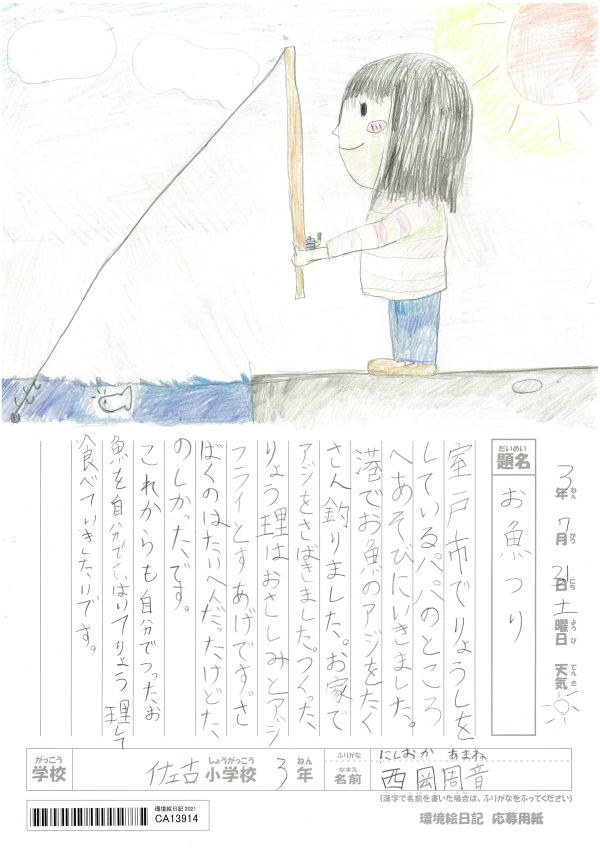 3年ねん 7月がつ 31日にち 土曜日ようび 天気てんき
題名だいめい
お魚つり
室戸市でりょうしを
しているパパのところ
へあそびにいきました。
港でお魚のアジをたく
さん釣りました。お家で
アジをさばきました。つくった、
りょう理はおさしみとアジ
フライとすあげです。さ
ばくのはたいへんだったけどた、
のしかった、です。
これからも自分でつった、お
魚を自分でさばいてりょう理して
食べていきたいです。
学校がっこう 佐古 小学校しょうがっこう 3年ねん
ふりがな にしおか あまね
名前なまえ 西岡周音
(漢字で名前を書いた場合は、ふりがなをふってください)
環境絵日記 2021
CA13914
環境絵日記 応募用紙